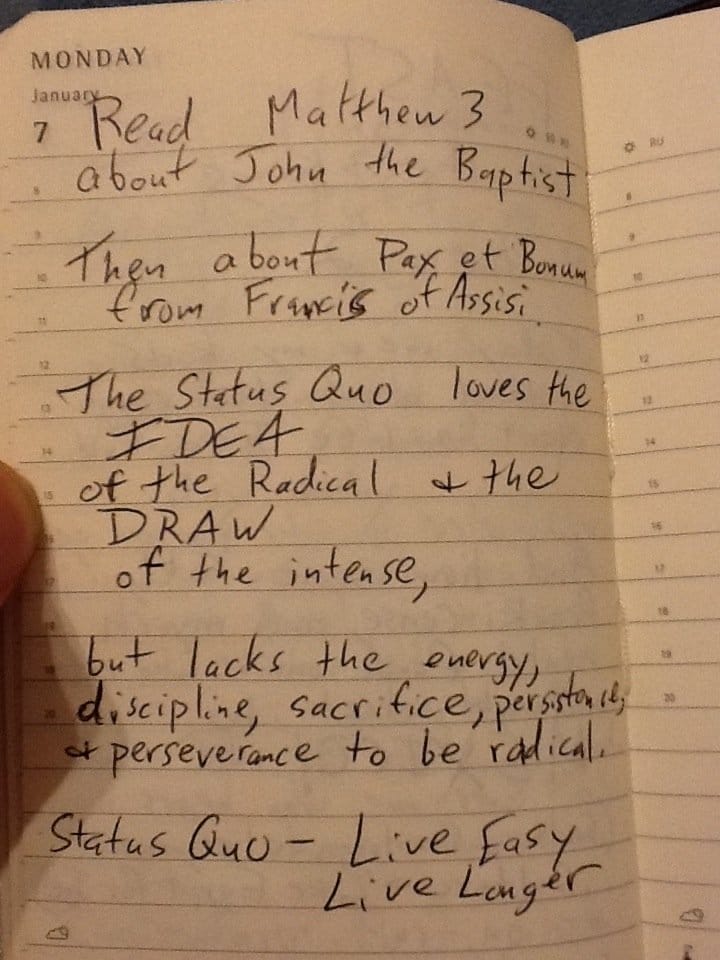 MONDAY
January
7 Read Matthew 3
about John the Baptist
Then about Pax et Bonum
from Francis of Assisi.
The Status Quo loves the
IDEA
of the Radical & the
DRAW
of the intense,
but lacks the energy,
discipline, sacrifice, persistence,
& perseverance to be radical.
Status Quo - Live Easy
Live Longer
8
9
10
11
12
13
14
15
16
17
18
19
20
8
9
10
11
12
13
14
15
16
17
18
19
20